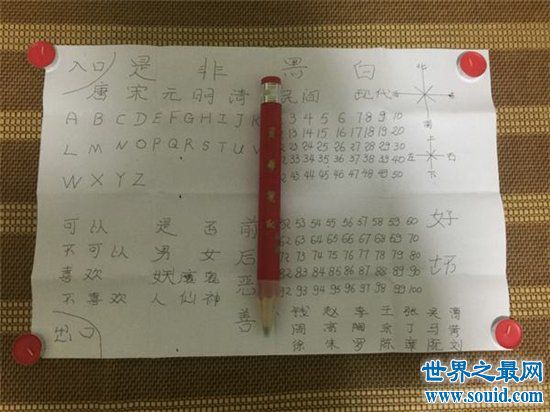 入口 是 非 黑 白 北
唐 宋 元 明 清 民间 现代
南
A B C D E F G H I J K 3 4 5 6 7 8 9 10
L M N O P Q R S T U V 13 14 15 16 17 18 19 20 上
22 23 24 25 26 27 28 29 30 左 右
W X Y Z 32 33 34 35 36 37 38 39 40 下
42 43 44 45 46 47 48 49 50
可以 是 否 前 52 53 54 55 56 57 58 59 60 好
不可以 男 女 后 62 63 64 65 66 67 68 69 70
72 73 74 75 76 77 78 79 80 坏
喜欢 妖 魔 鬼 恶 82 83 84 85 86 87 88 89 90
不喜欢 人 仙 神 善 92 93 94 95 96 97 98 99 100
出口 钱 赵 李 王 张 吴 曹
周 高 余 丁 马 黄
徐 朱 罗 陈 章 阮 刘
世界之最网
www.souid.com